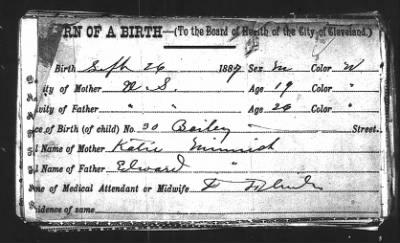 RN OF A BIRTH—(To the Board of Health of the City of Cleveland.)
Birth Sept 26 1889 Sex M Color W
ity of Mother U.S. Age 19 Color "
ivity of Father " " Age 26 Color "
ce of Birth (of child) No. 30 Bailey Street.
l Name of Mother Katie
l Name of Father Edward "
me of Medical Attendant or Midwife
sidence of same